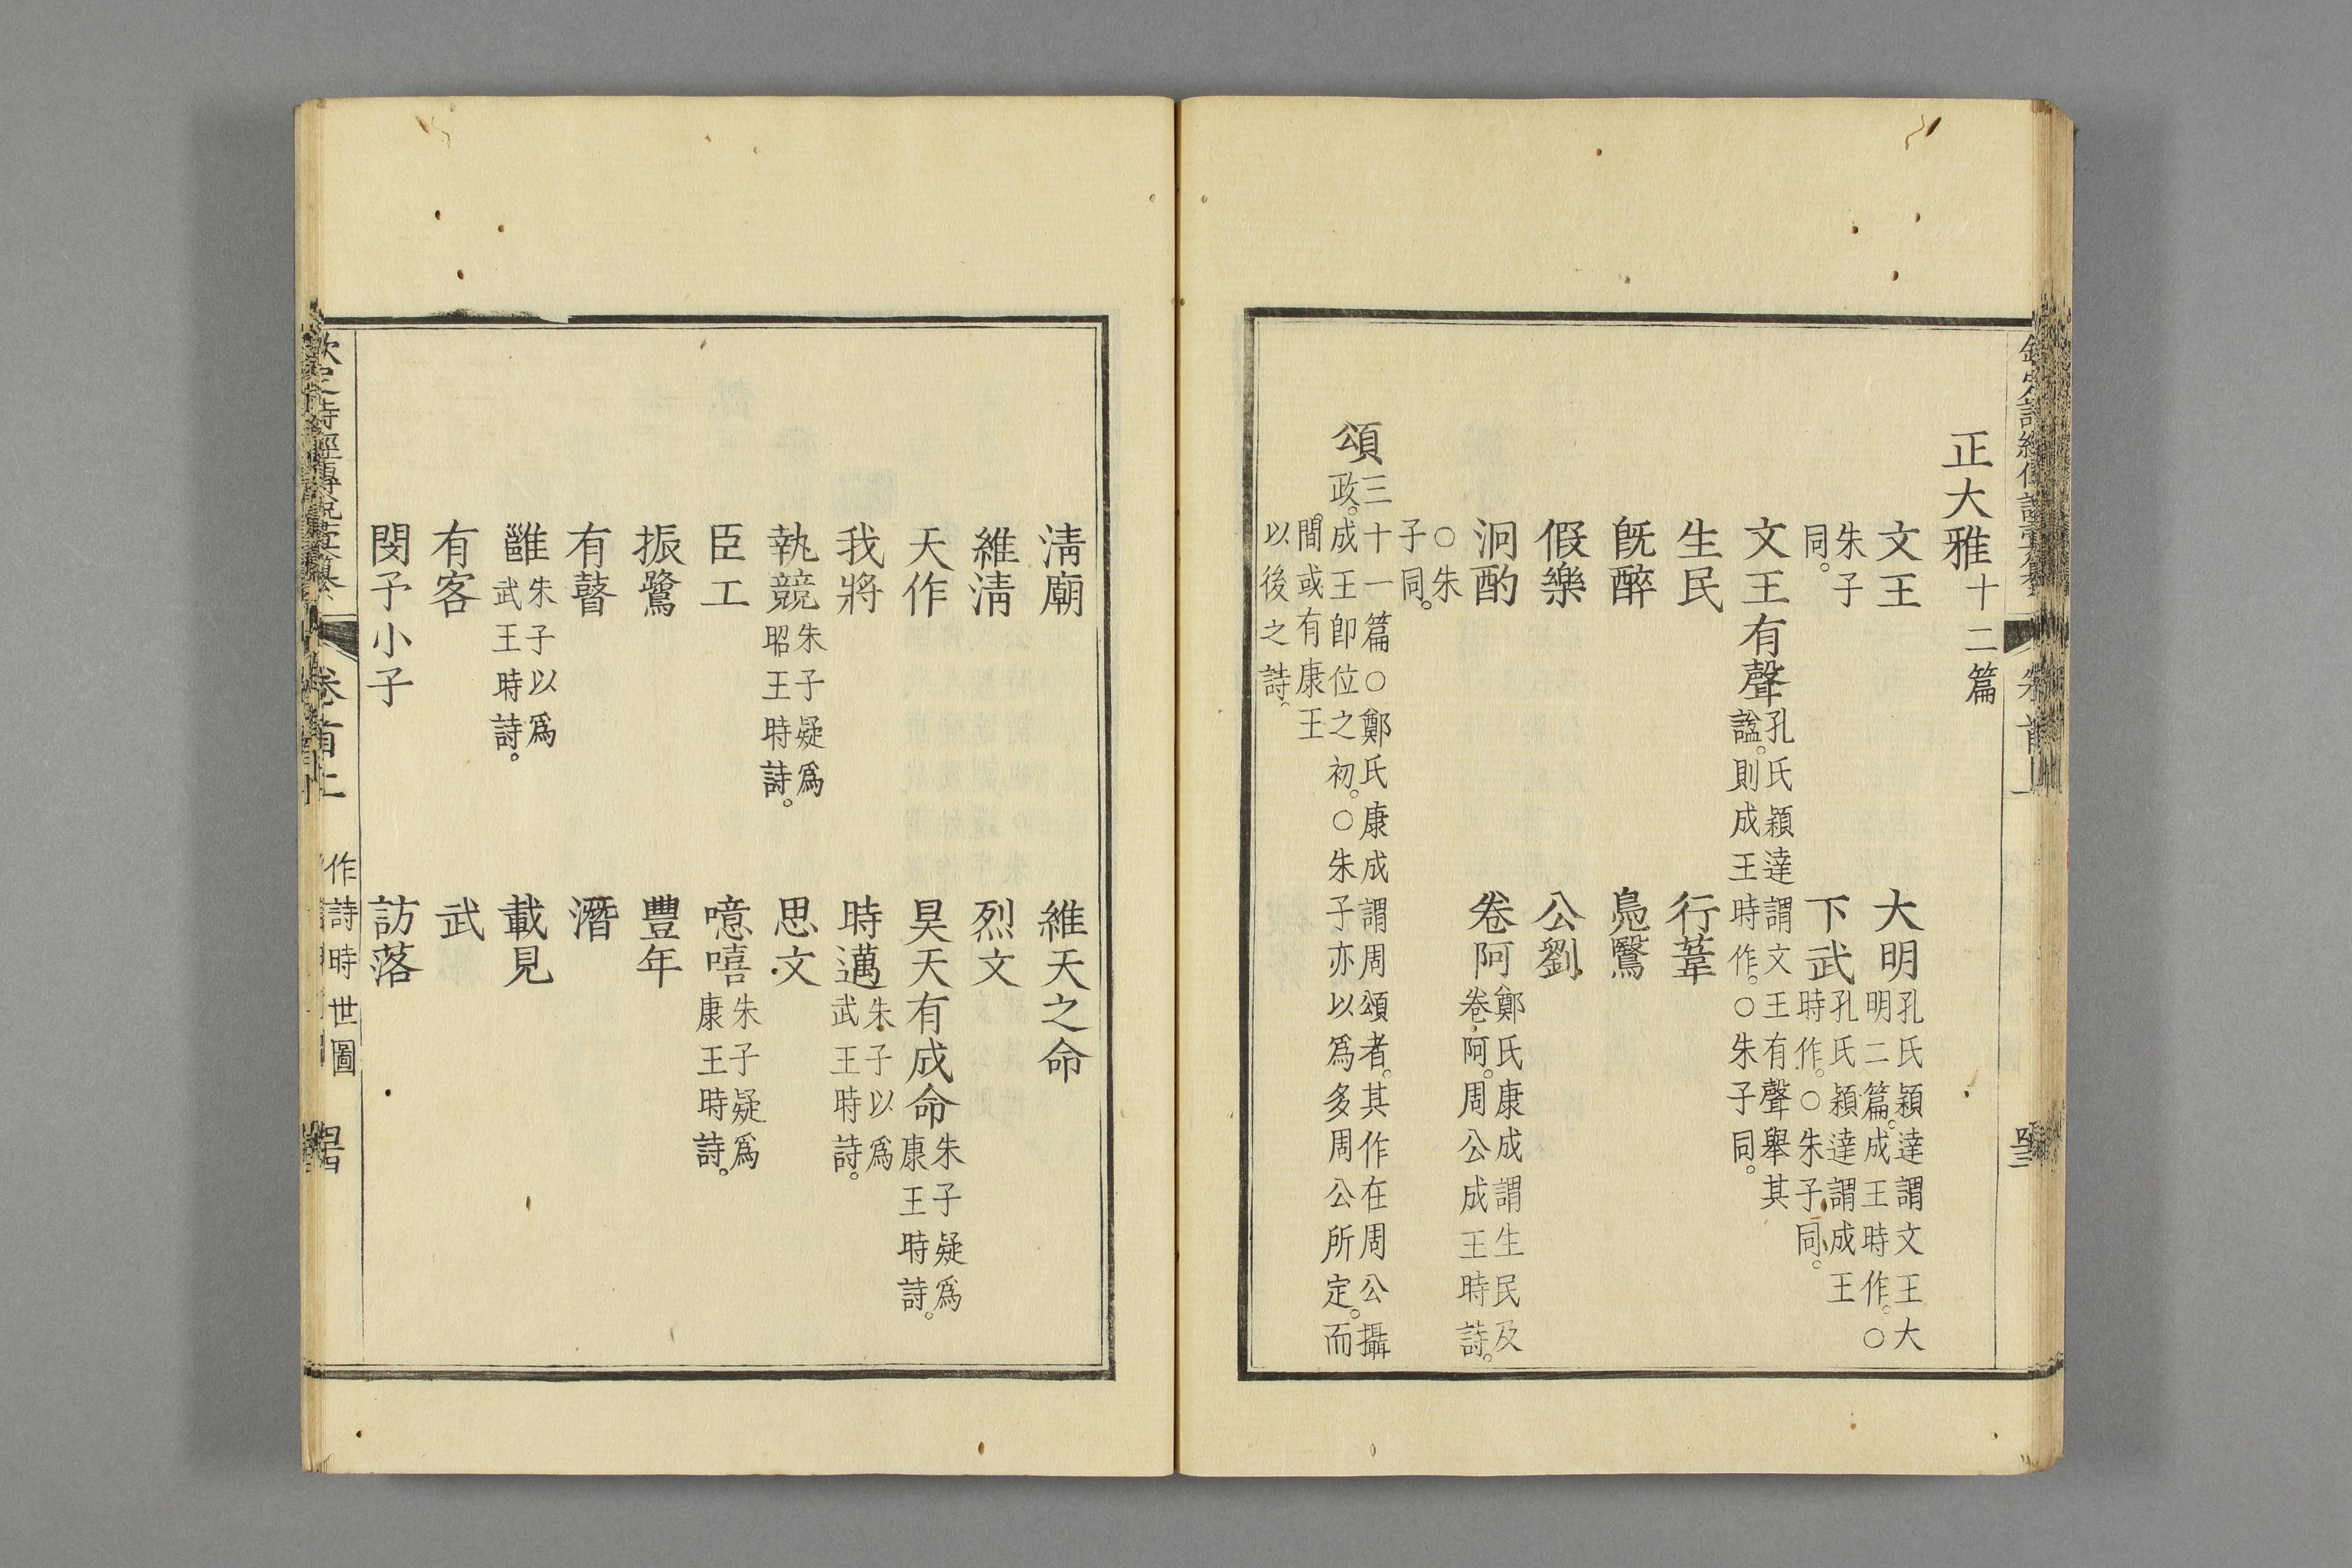 正大雅十二篇
文王
大明孔氏穎達謂文王大
明二篇。成王時作。○
朱子
同。
下武孔氏穎達謂成王
時作。○朱子同。
文王有聲孔氏穎達謂文王有聲舉其
諡。則成王時作。○朱子同。
生民
行葦
旣醉
鳧鷖
假樂
公劉
泂酌
卷阿鄭氏康成謂生民及
卷阿。周公成王時詩。
○朱
子同。
頌三十一篇○鄭氏康成謂周頌者。其作在周公攝
政。成王卽位之初。○朱子亦以爲多周公所定。而
間或有康王
以後之詩。
清廟
維天之命
維清
烈文
天作
昊天有成命朱子疑爲
康王時詩。
我將
時邁朱子以爲
武王時詩。
執競朱子疑爲
昭王時詩。
思文
臣工
噫嘻朱子疑爲
康王時詩。
振鷺
豐年
有瞽
潛
雝朱子以爲
武王時詩。
載見
有客
武
閔予小子
訪落
卷首上
作詩時世圖